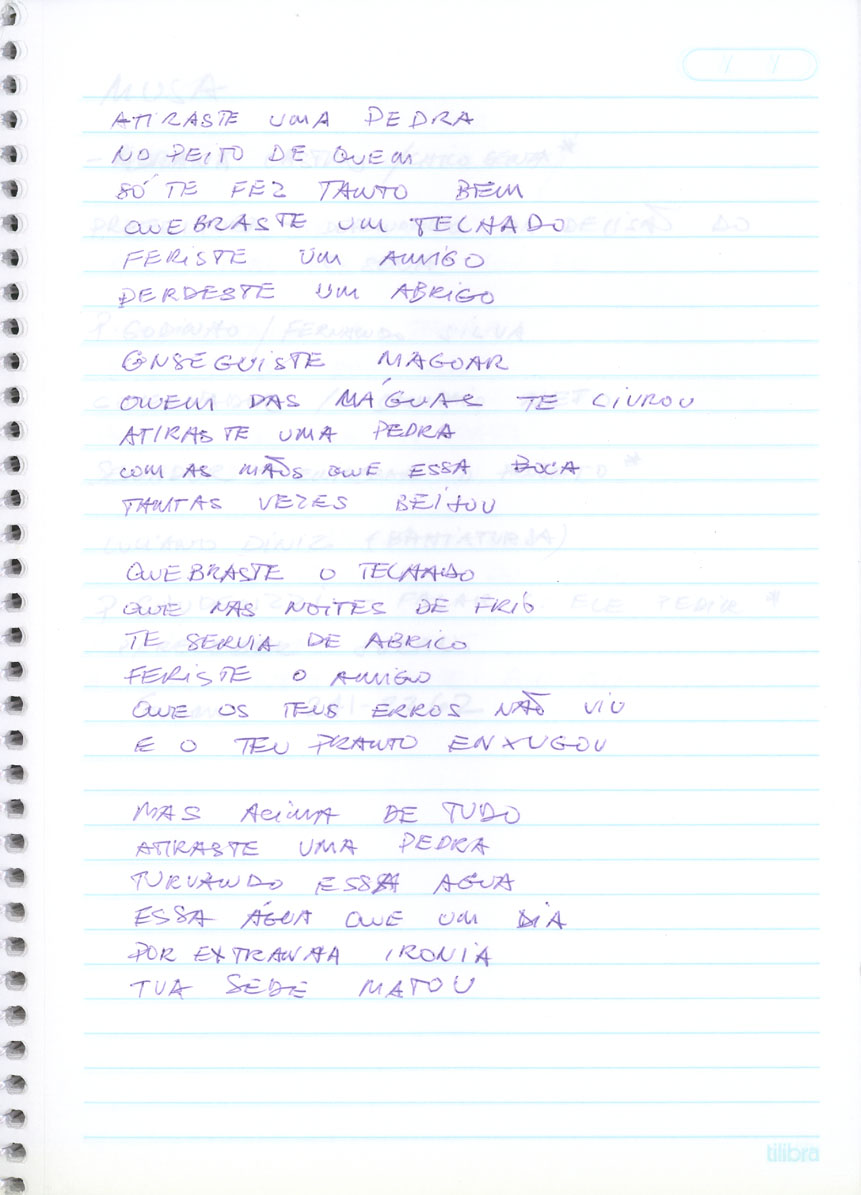 ATIRASTE UMA PEDRA
NO PEITO DE QUEM
SÓ TE FEZ TANTO BEM
QUEBRASTE UM TELHADO
FERISTE UM AMIGO
PERDESTE UM ABRIGO
CONSEGUISTE MAGOAR
QUEM DAS MÁGUAS TE LIVROU
ATIRASTE UMA PEDRA
COM AS MÃOS QUE ESSA BOCA
TANTAS VEZES BEIJOU
QUEBRASTE O TELHADO
QUE NAS NOITES DE FRIO
TE SERVIA DE ABRIGO
FERISTE O AMIGO
QUE OS TEUS ERROS NÃO VIU
E O TEU PRANTO ENXUGOU
MAS ACIMA DE TUDO
ATIRASTE UMA PEDRA
TURVANDO ESSA AGUA
ESSA ÁGUA QUE UM DIA
POR EXTRANHA IRONIA
TUA SEDE MATOU
tilibra